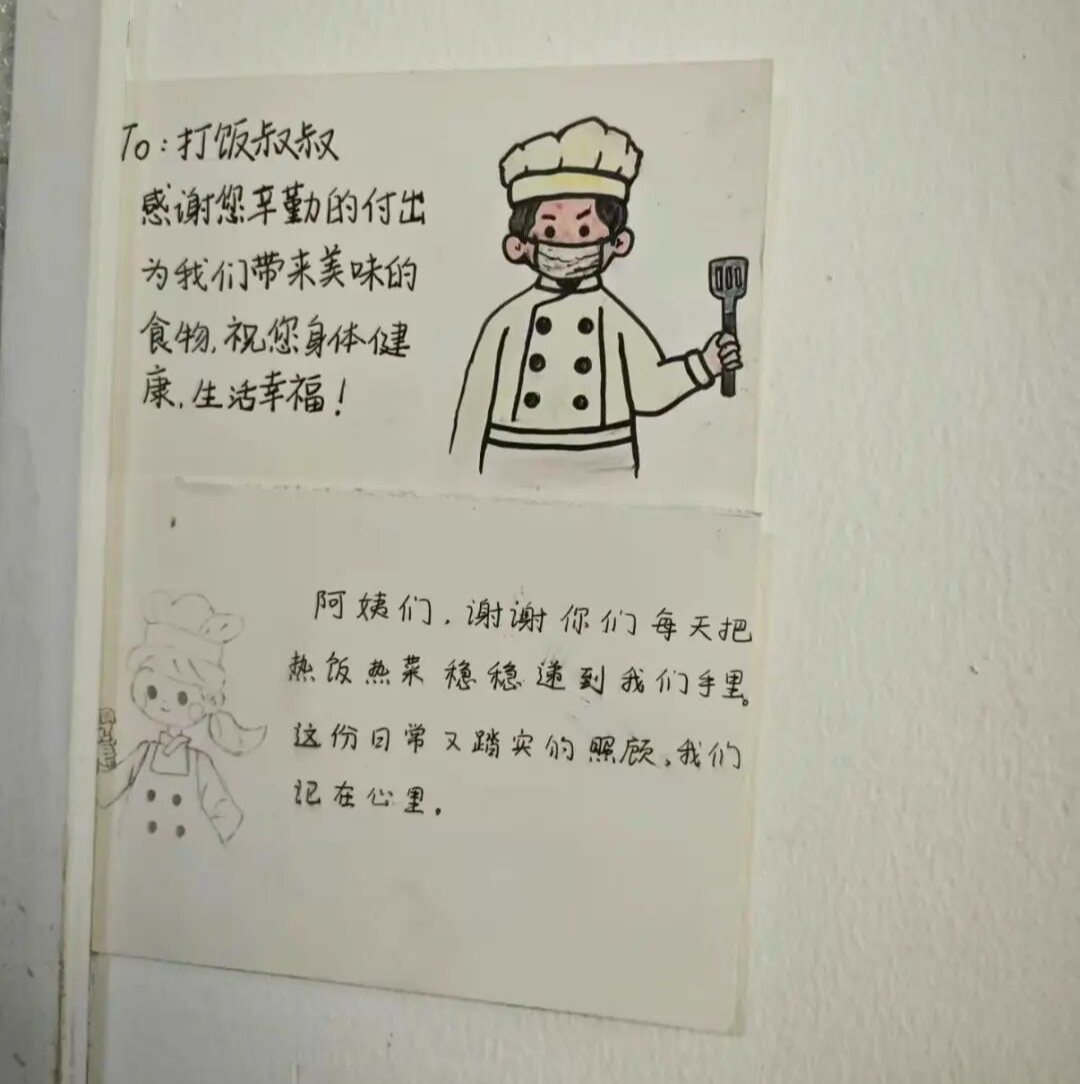 To：打饭叔叔
感谢您辛勤的付出
为我们带来美味的
食物，祝您身体健
康，生活幸福！
阿姨们，谢谢你们每天把
热饭热菜稳稳递到我们手里。
这份日常又踏实的照顾，我们
记在心里。